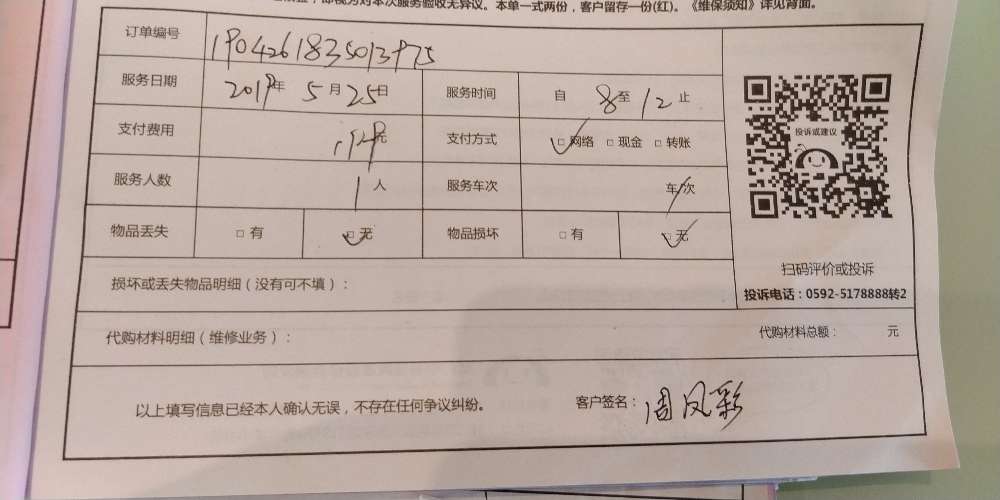 即视为对本次服务验收无异议。本单一式两份，客户留存一份(红)。《维保须知》详见背面。
订单编号 1904261835013975
服务日期 2019年 5月25日 服务时间 自 8至12止
支付费用 元 支付方式 □网络 □现金 □转账
服务人数 1人 服务车次 车/次
物品丢失 □有 □无 物品损坏 □有 □无
投诉或建议
扫码评价或投诉
投诉电话：0592-5178888转2
损坏或丢失物品明细（没有可不填）：
代购材料明细（维修业务）： 代购材料总额： 元
以上填写信息已经本人确认无误，不存在任何争议纠纷。 客户签名：周凤彩